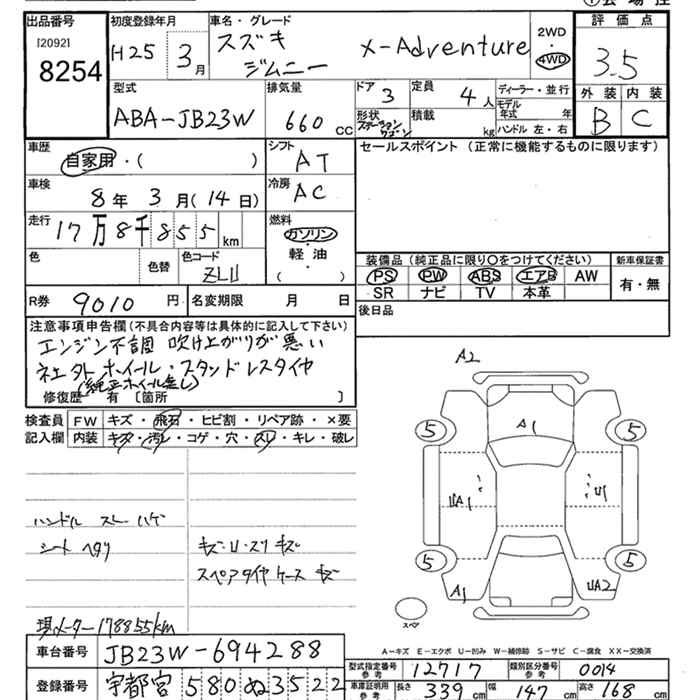 出品番号
120921
8254
初度登録年月
H25 3月
車名・グレード
スズキ
ジムニー
X-Adventure
2WD
・
4WD
評価点
3.5
外装 内装
B C
型式
ABA-JB23W
排気量
660 CC
ドア
3
定員
4人
形状
ステーションワゴン
積載
kg
ディーラー・並行
モデル年式 年
ハンドル 左・右
車歴
自家用・( )
シフト
AT
セールスポイント (正常に機能するものに限ります)
車検
8年 3月(14日)
冷房
AC
走行
17万8千855km
燃料
ガソリン
軽・油
( )
色
色替
色コード
ZLU
装備品 (純正品に限り〇をつけてください)
新車保証書
PS PW ABS エアB AW
SR ナビ TV 本革
有・無
R券 9010円
名変期限 月 日
後日品
注意事項申告欄(不具合内容等は具体的に記入して下さい)
エンジン不調 吹け上がりが悪い
社外ホイール・スタッドレスタイヤ
(純正ホイール無し)
修復歴 有〔箇所 〕
検査員
記入欄
FW キズ・飛石・ヒビ割・リペア跡・×要
内装 キズ・汚レ・コゲ・穴・スレ・キレ・破レ
ハンドル スレ ハゲ
シート ヘタリ
キズ・U・スリキズ
スペアタイヤ ケース キズ
現メーター178855km
A2
5
5
A1
UA1
U1
5
5
A1
UA2
スペア
A-キズ E-エクボ U-凹み W-補修跡 S-サビ C-腐食 XX-交換済
車台番号
JB23W-694288
登録番号
宇都宮 580 ぬ 3522
型式指定番号
参考
12717
類別区分番号
参考
0014
車庫証明用
参考
長さ 339cm
幅 147cm
高さ 168cm